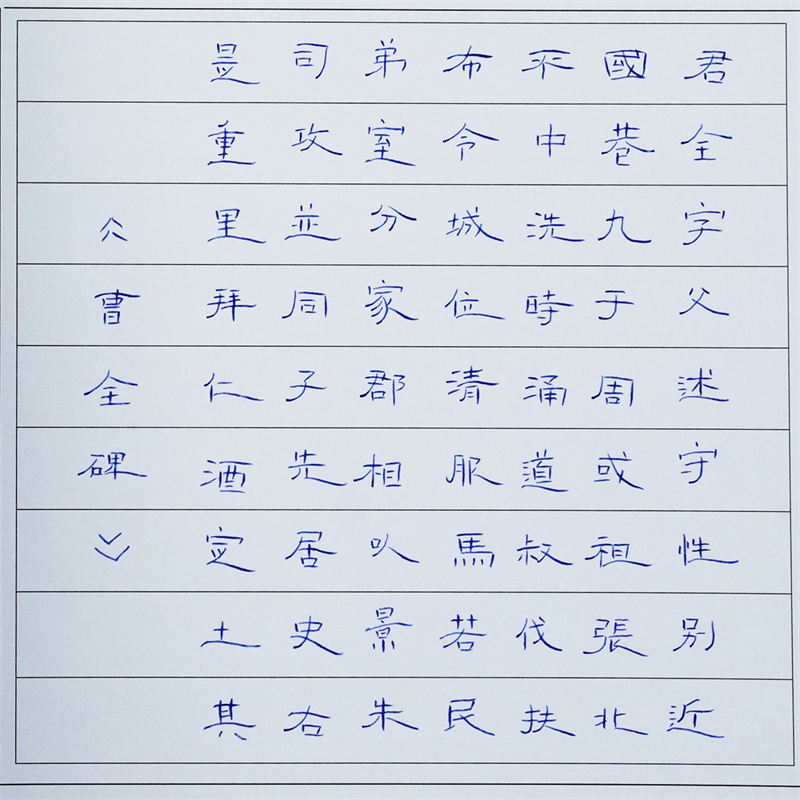 君全字父述守性别近
國巷九于周或祖張北
不中洗時涌道叔伐扶
布令城位清服馬若民
弟室分家郡相以景朱
司攻並同子先居史右
是重里拜仁酒定土其
《曹全碑》